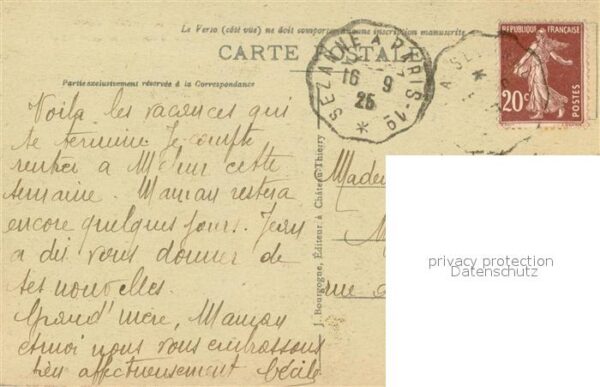 Le Verso (côté vue) ne doit comporter aucune inscription manuscrite
CARTE POSTALE
Partie exclusivement réservée à la Correspondance
SEZANNE A PARIS 1°
16 9
25
A SE
REPUBLIQUE FRANÇAISE
20c
POSTES
Voila les vacances qui
se termine. Je compte
rentrer à Melun cette
semaine. Maman restera
encore quelques jours. Jean
a dû vous donner de
ses nouvelles.
Grand'mère, Maman
et moi nous vous embrassons
bien affectueusement Cécile
J. Bourgogne, Éditeur à Château-Thierry
Madem
M
rue d
privacy protection
Datenschutz